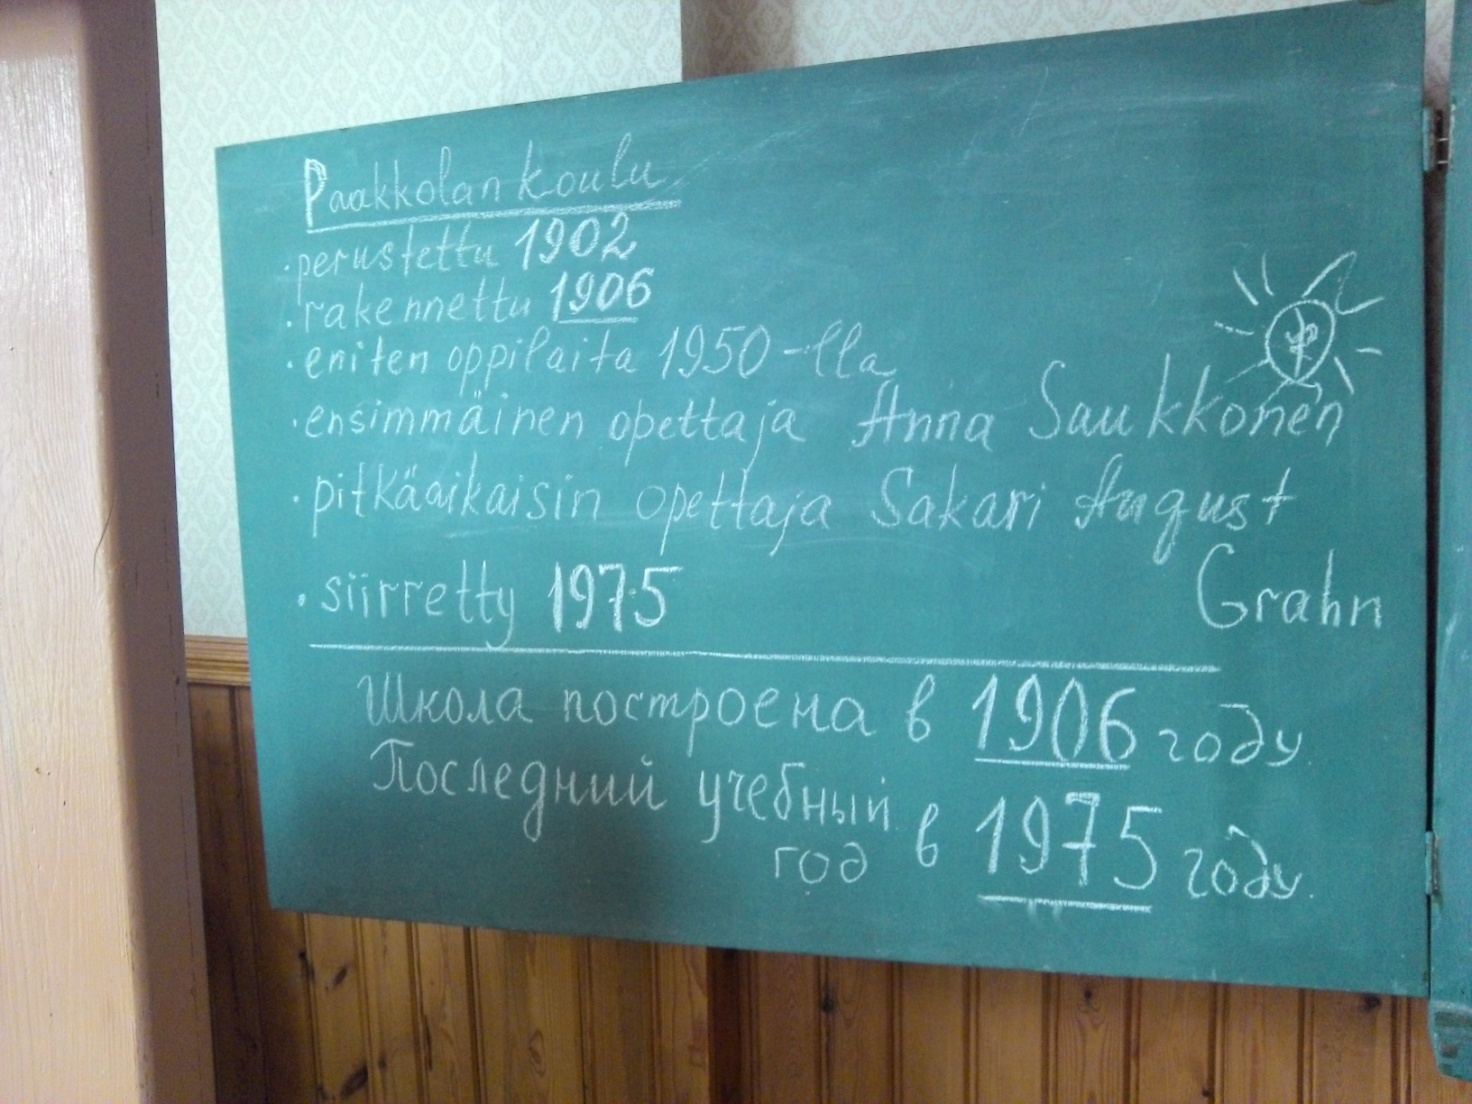 Paakkolan koulu
·perustettu 1902
·rakennettu 1906
·eniten oppilaita 1950-lla
·ensimmäinen opettaja Anna Saukkonen
·pitkäaikaisin opettaja Sakari August
Grahn
·siirretty 1975
Школа построена в 1906 году.
Последний учебный
год в 1975 году.